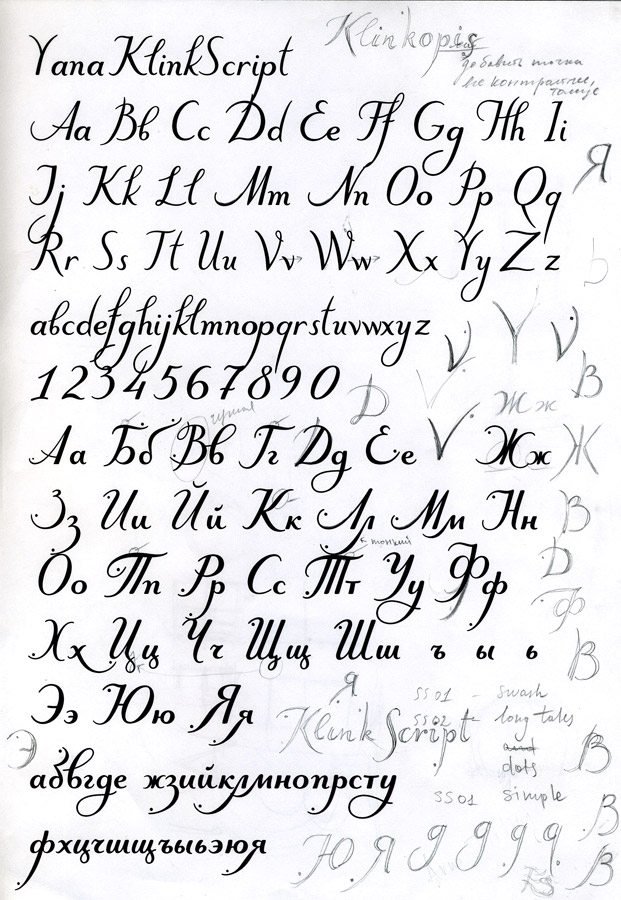 Klinkopis
Yana KlinkScript
добавить точки
все контрастнее,
толще
Aa Bb Cc Dd Ee Ff Gg Hh Ii
Я
Jj Kk Ll Mm Nn Oo Pp Qq
Rr Ss Tt Uu Vv Ww Xx Yy Zz
abcdefghijklmnopqrstuvwxyz
V Y V
В
1234567890
Д
Жж
Аа Бб Вв Гг Дд Ее V Жж Ж
Зз Ии Йй Кк Лл Мм Нн В
тонкий
Д
Оо Пп Рр Сс Тт Уу Фф
Ф
Хх Цц Чч Щщ Шш ъ ы ь В
Я
SS01 - swash
Ээ Юю Яя
SS02 - long tales
Klink Script
and
dots
Э
В
абвгде жзийклмнопрсту
SS01 simple
В
фхцчшщъыьэюя
Ю Я g g g q В